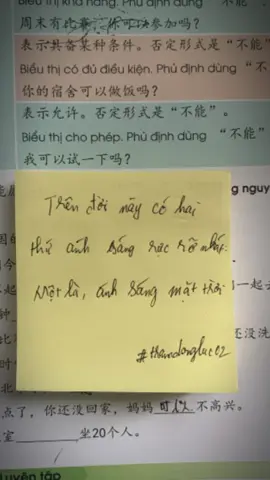 Biểu thị khả năng. Phủ định dùng "不能".
周末有比赛，你可以参加吗？
表示具备某种条件。否定形式是"不能"
Biểu thị có đủ điều kiện. Phủ định dùng "不
你的宿舍可以做饭吗？
表示允许。否定形式是"不能"。
Biểu thị cho phép. Phủ định dùng "不能"
我可以试一下吗？
g nguy
Trên đời này có hai
thứ ánh sáng rực rỡ nhất.
Một là, ánh sáng mặt trời
一起去
还没洗
点了，你还没回家，妈妈 可以 不高兴。
室 坐20个人。
Luyện tập